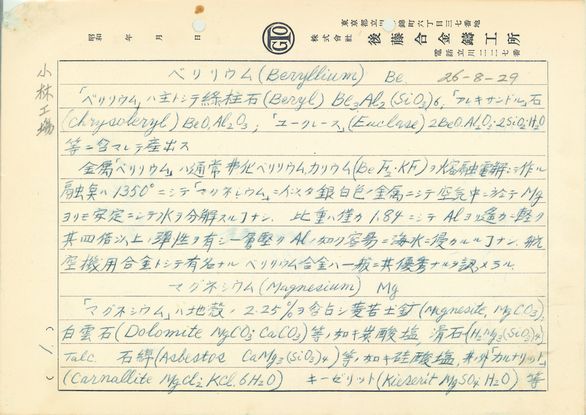 東京都立川市錦町六丁目三七番地
株式會社 後藤合金鑄工所
電話立川二二七番
昭和 年 月 日
小林工場
ベリリウム (Beryllium) Be. 26-8-29
「ベリリウム」ハ主トシテ綠柱石 (Beryl) Be3Al2(SiO3)6, 「アレキサンドル」石
(Chrysoberyl) BeO,Al2O3; 「ユークレース」(Euclase) 2BeO.Al2O3.2SiO2.H2O
等ニ含マレテ産出ス
金属「ベリリウム」ハ通常弗化ベリリウムカリウム (BeF2・KF) ヲ熔融電解シテ作ル
融臭ハ1350°ニシテ「マグネシウム」ニ似タ銀白色ノ金属ニシテ空気中ニ於テ Mg
ヨリモ安定ニシテ水ヲ分解スルヿナシ. 比重ハ僅カ 1.84 ニシテ Al ヨリ遙カニ堅ク
其四倍以上ノ弾性ヲ有シ一番堅ク Al ノ如ク容易ニ海水ニ侵カルヿナシ. 航
空機用合金トシテ有名ナル ベリリウム合金ハ一般ニ其優秀ナルヲ認メラル.
マグネシウム (Magnesium) Mg
「マグネシウム」ハ地殻ノ 2.25%ヲ占シ 菱苦土鉱 (Magnesite, MgCO3),
白雲石 (Dolomite MgCO3 CaCO3) 等ノ如キ炭酸塩 滑石 (H2Mg3(SiO3)4)
Talc 石綿 (Asbestos CaMg3(SiO3)4) 等ノ如キ硅酸塩, 其外「カルナリット」
(Carnallite MgCl2 KCl, 6H2O) キーゼリット (Kieserit MgSO4 H2O) 等
(1.)